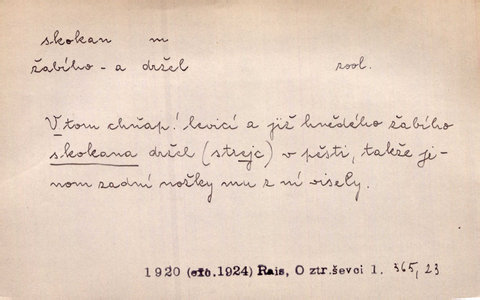 skokan m
žabího - a držel zool.
V tom chňap! levicí a již hnědého žabího
skokana držel (strejc) v pěsti, takže je-
nom zadní nožky mu z ní visely.
1920 (cit.1924) Rais, O ztr.ševci 1. 365,23